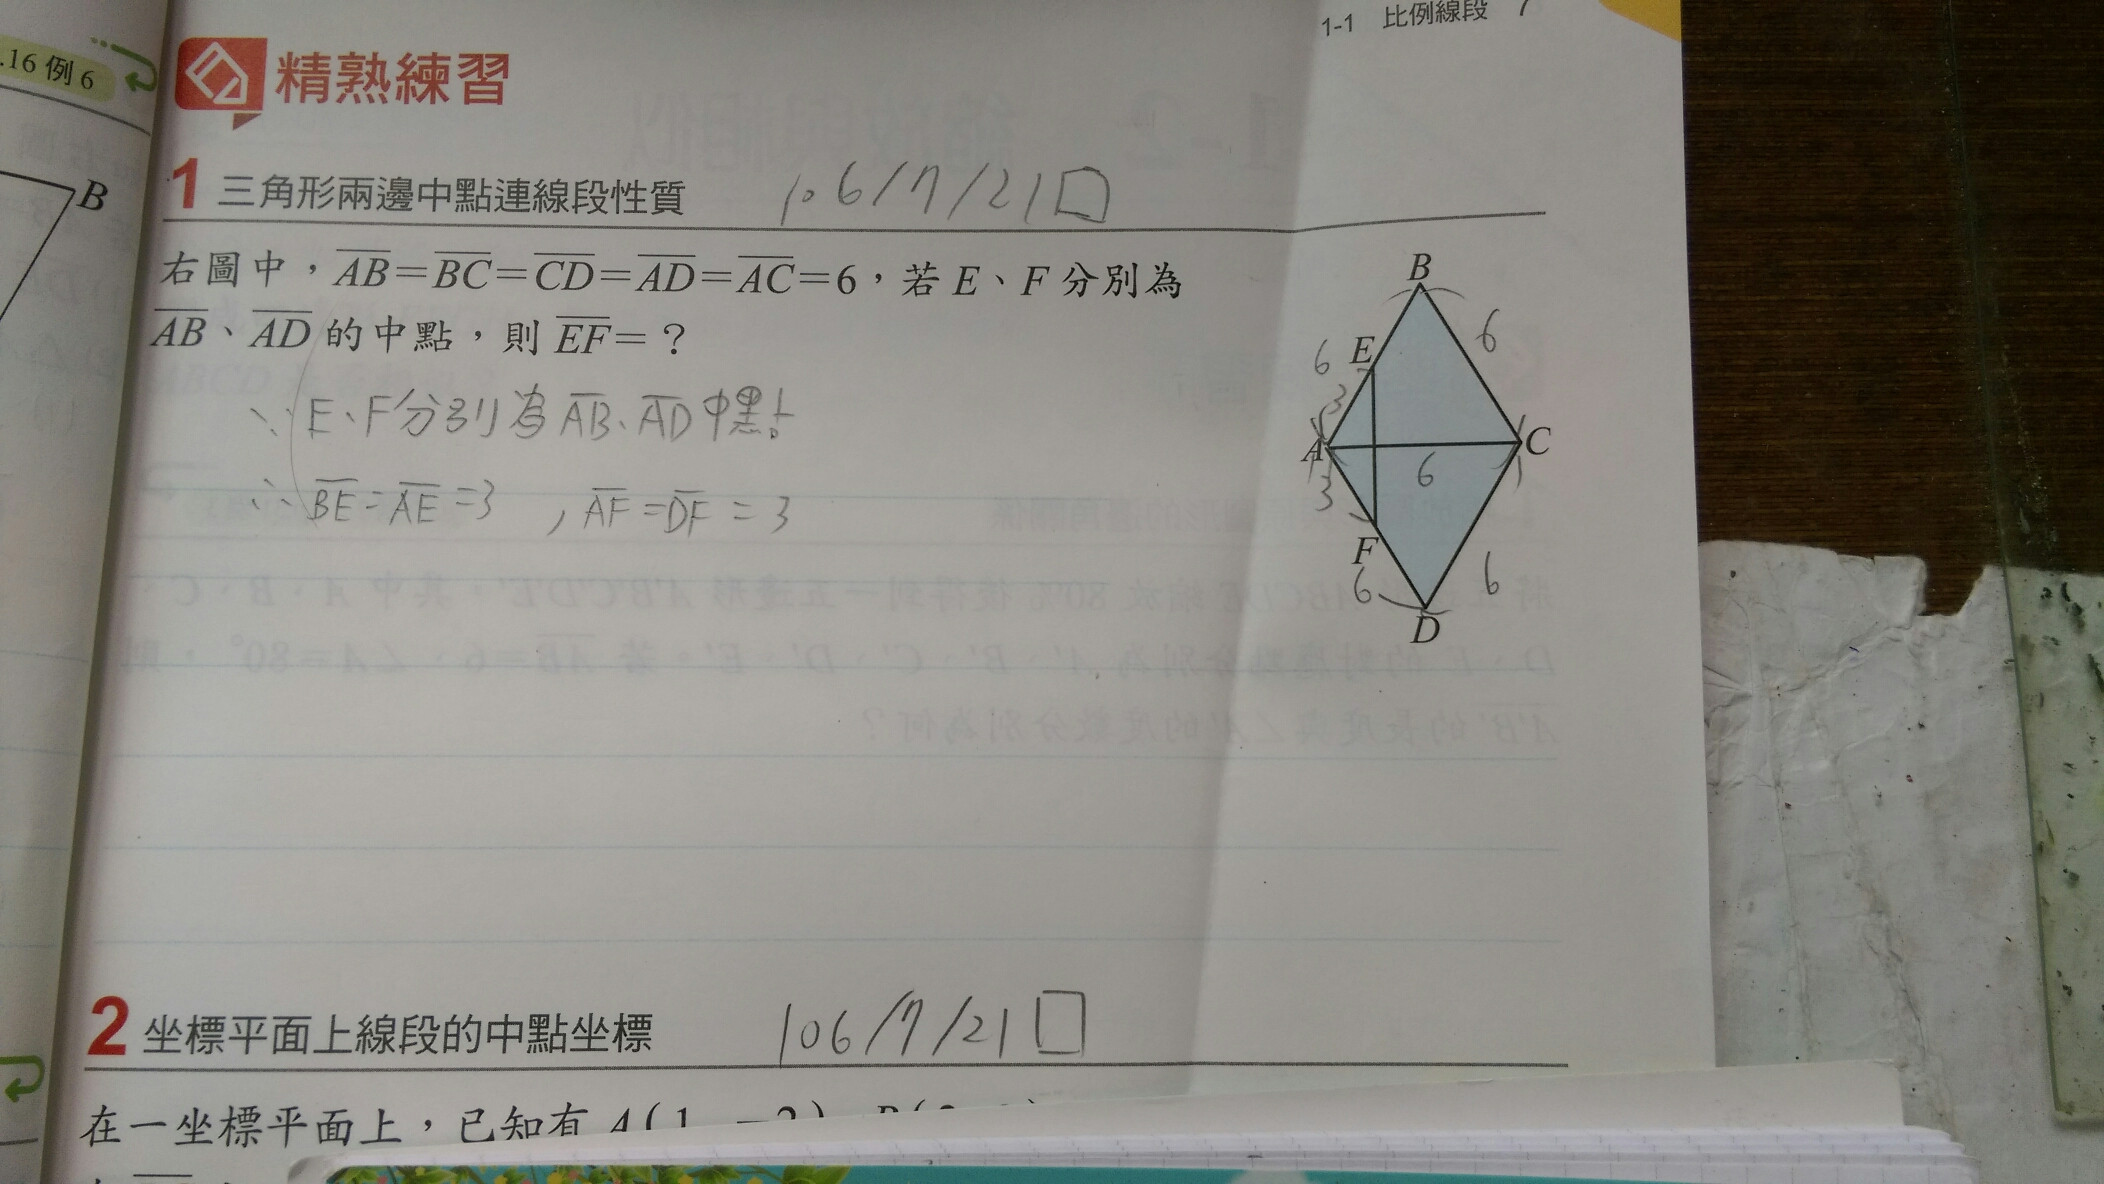 1-1 比例線段
.16 例 6
精熟練習
B
1 三角形兩邊中點連線段性質 106/7/21
右圖中，AB＝BC＝CD＝AD＝AC＝6，若 E、F 分別為
AB、AD 的中點，則 EF＝？
∵ E、F分別為 AB、AD中點
∴ BE=AE=3 , AF=DF=3
B
6
6
E
3
A
C
6
3
F
6
6
D
2 坐標平面上線段的中點坐標 106/7/21
在一坐標平面上，已知有 A(1